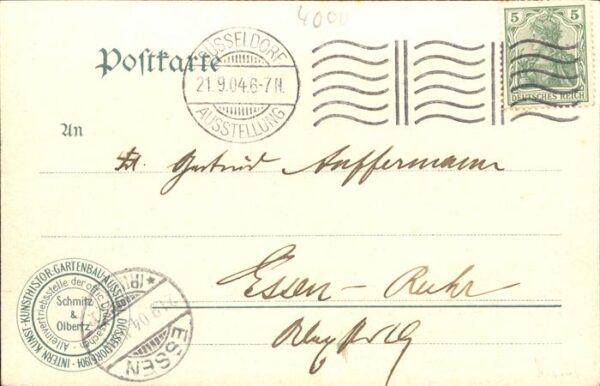 4000
Postkarte
DÜSSELDORF
21.9.04.6-7N.
AUSSTELLUNG
5 5
DEUTSCHES REICH
An
Frl. Gertrud Auffermann
Essen-Ruhr
INTERN. KUNST- KUNSTHISTOR.-GARTENBAU-AUSST. DÜSSELDORF 1904
Alleinvertriebsstelle der offic.
Schmitz
&
Olbertz
ESSEN